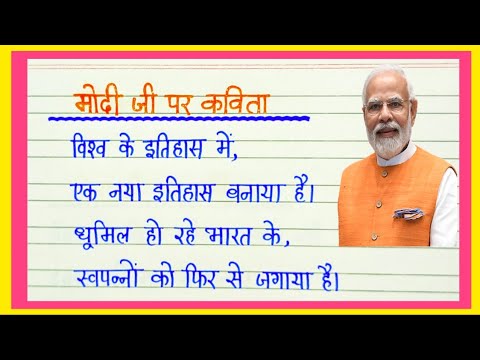 मोदी जी पर कविता
विश्व के इतिहास में,
एक नया इतिहास बनाया है।
धूमिल हो रहे भारत के,
स्वपन्नों को फिर से जगाया है।